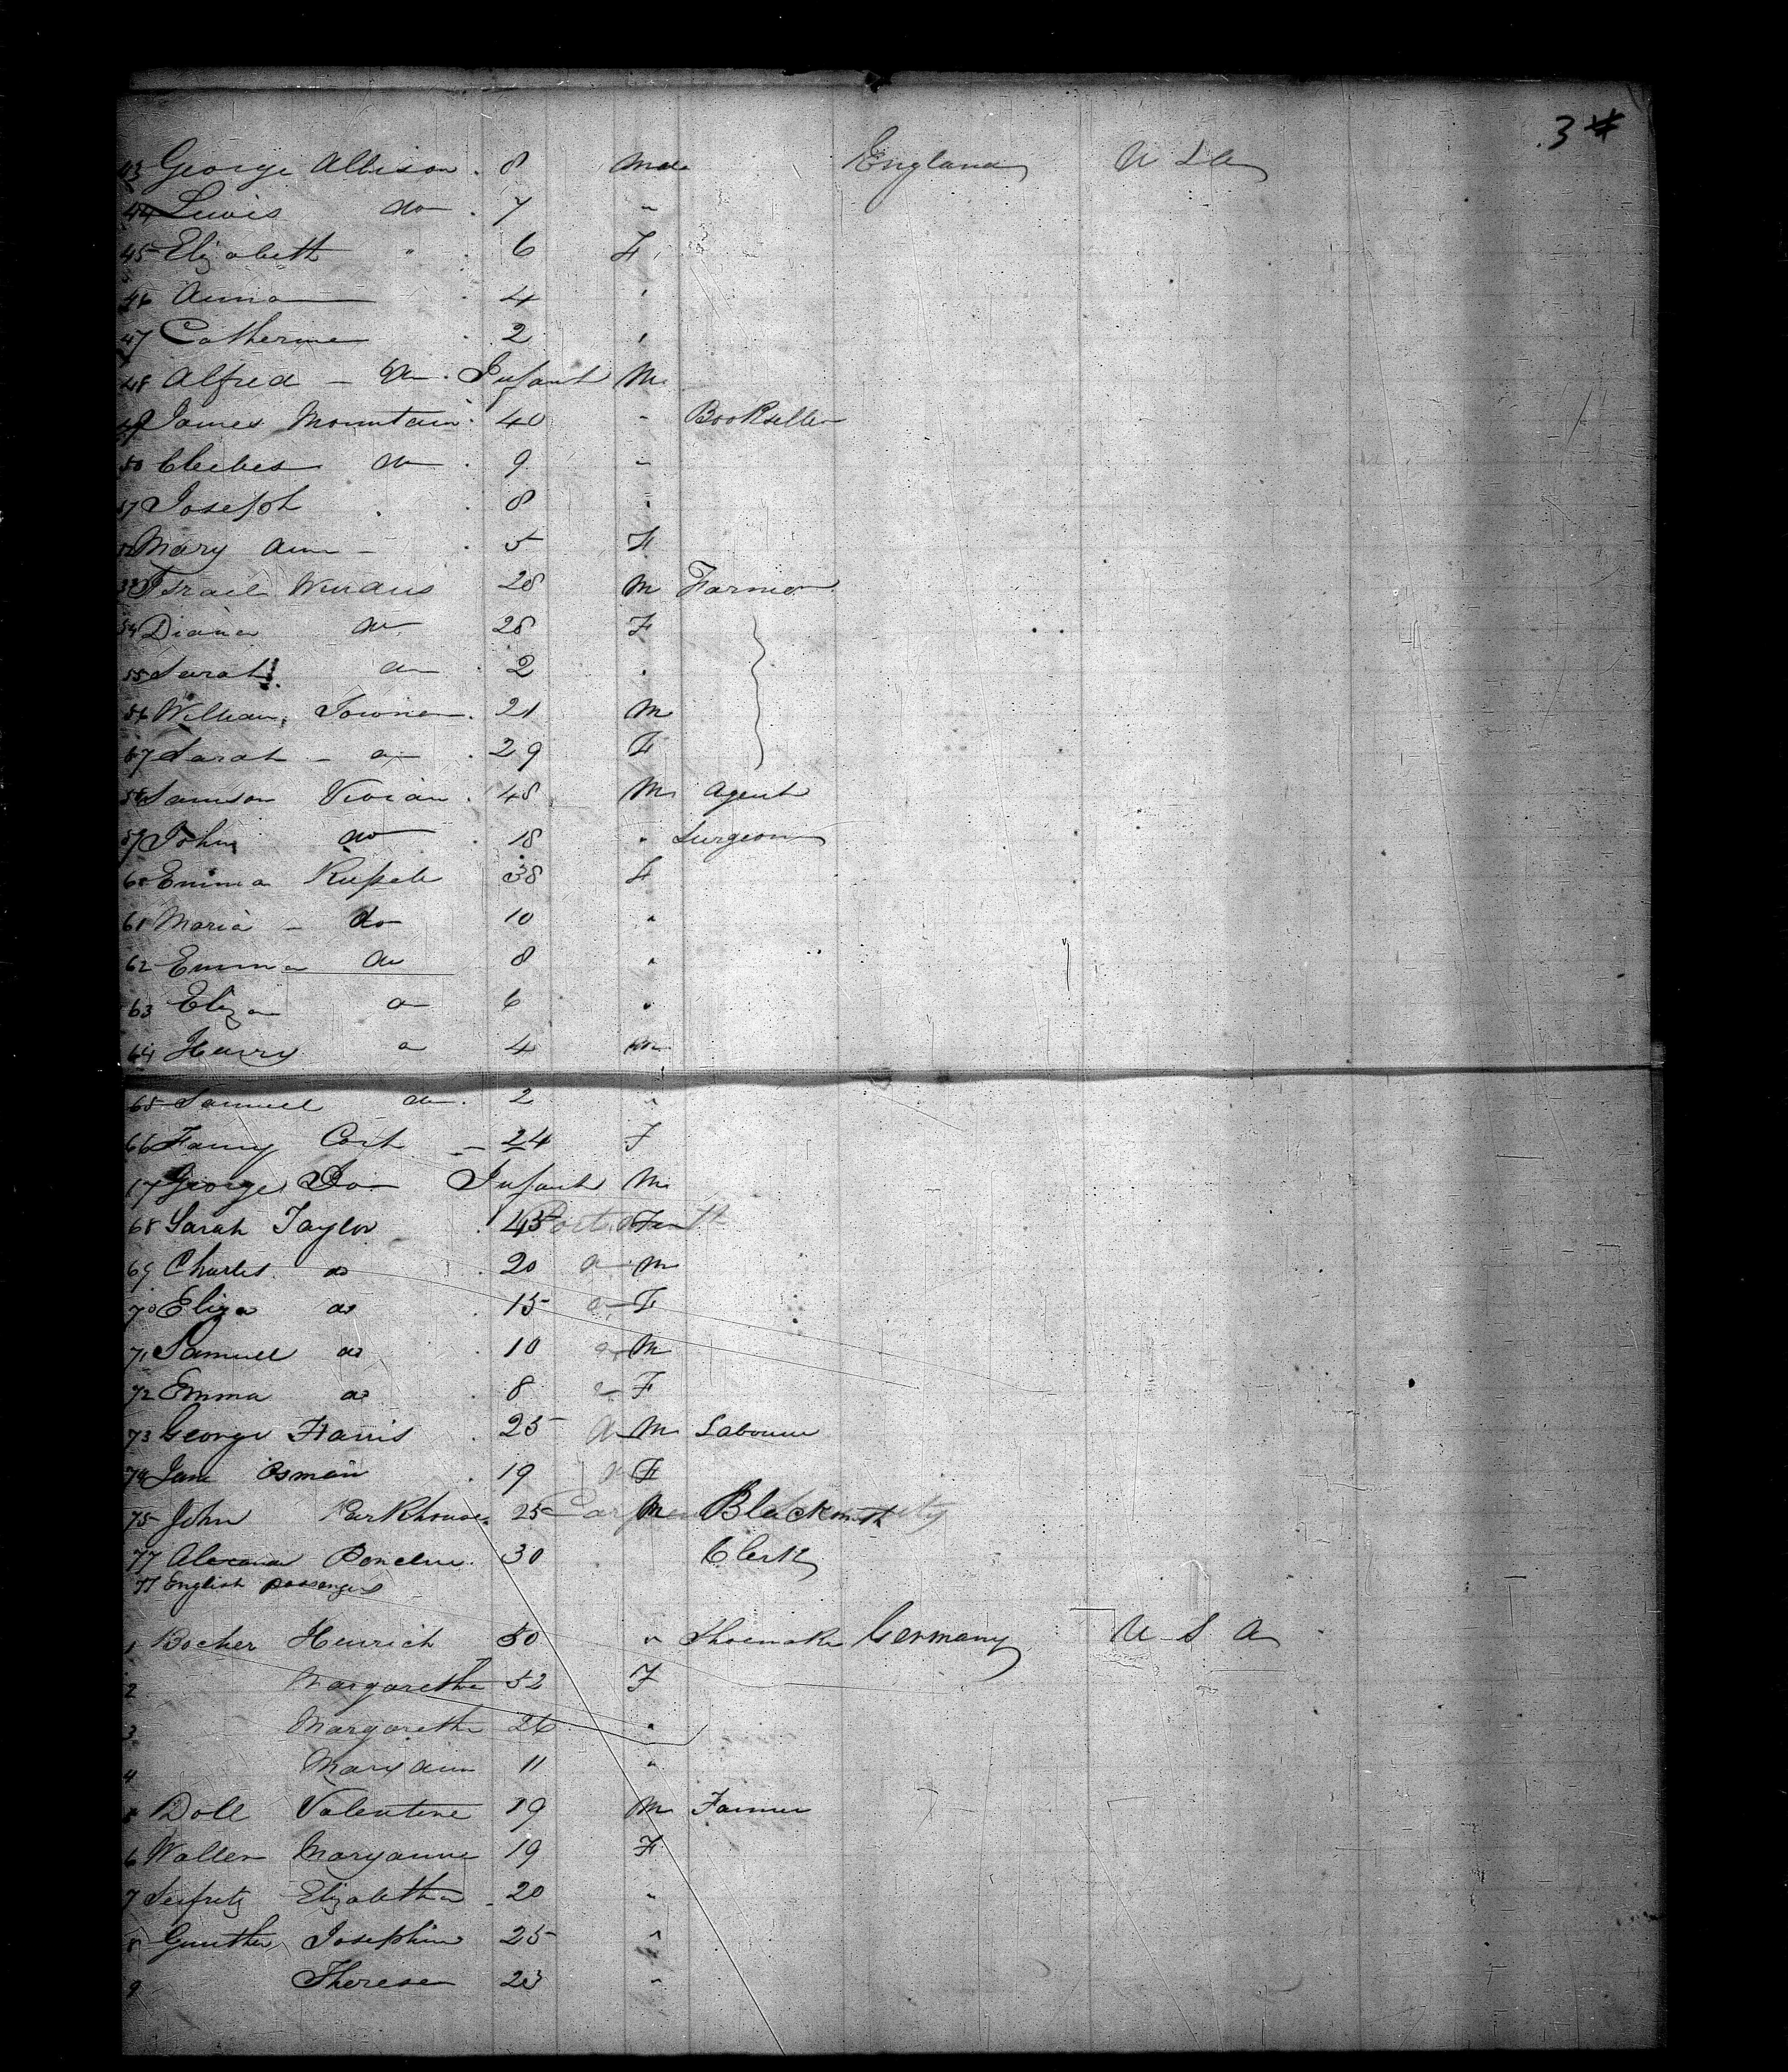 3
43 George Allison 8 Male England U S A
44 Lewis do 7 "
45 Elizabeth " 6 F
46 Anna 4 "
47 Catherine 2 "
48 Alfred - do Infant M
49 James Mountain 40 " Bookseller
50 do 9 "
51 Joseph " 8 "
52 Mary Ann - 5 F
53 Israel 28 M Farmer
54 Diana do 28 F
55 Sarah do 2 "
56 William 21 M
57 Sarah - do 29 F
58 Samson Vivian 48 M Agent
59 John do 18 " Surgeon
60 Emma 38 F
61 Maria - do 10 "
62 Emma do 8 "
63 Eliza do 6 "
64 Henry do 4 M
65 Samuel do 2 "
66 Fanny 24 F
67 George Do Infant M
68 Sarah Taylor 43 F
69 Charles do 20 M
70 Eliza do 15 F
71 Samuel do 10 M
72 Emma do 8 F
73 George Harris 25 M Labourer
74 Jane Osman 19 F
75 John Parkhouse 25 M Blacksmith
77 30 Clerk
77 English passengers
1 Bocher Heinrich 50 " Shoemaker Germany U S A
2 Margarethe 52 F
3 Margarethe 26 "
4 Mary Ann 11 "
5 Doll Valentine 19 M Farmer
6 Waller Maryanne 19 F
7 Seifritz Elizabetha 20 "
8 Gunther Josephine 25 "
9 Therese 23 "